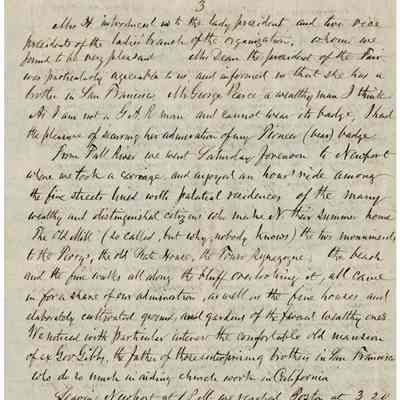 3
Mrs H. introduced us to the lady president and two vice
presidents of the ladies' branch of the organization, whom we
found to be very pleasant Mrs Dean the president of the Fair
was particularly agreeable to us, and informed us that she has a
brother in San Francisco Mr George Pearce a wealthy man I think
As I am not a G.A.R man and cannot wear its badge, I had
the pleasure of securing her admiration of my Pioneer (bear) badge
From Fall River we went Saturday forenoon to Newport
where we took a carriage, and enjoyed an hours ride among
the fine streets lined with palatial residences of the many
wealthy and distinguished citizens who make it their summer home
The Old Mill (so called, but why, nobody knows) the two monuments
to the Perrys, the old State House, the Touro Synagogue, the beach
and the fine walks all along the bluff overlooking it, all came
in for a share of our admiration, as well as the fine houses and
elaborately cultivated grounds, and gardens of the wealthy ones
We noticed with particular interest the comfortable old mansion
of ex Gov Gibbs, the father of three enterprising brothers in San Francisco
who do so much in aiding church work in California
Leaving Newport at we reached Boston at 3.20